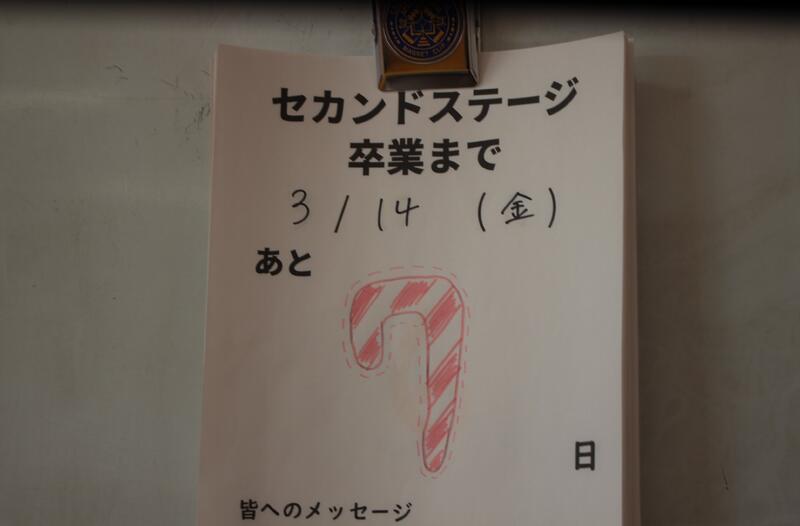 セカンドステージ
卒業まで
3/14 (金)
あと
7
日
皆へのメッセージ